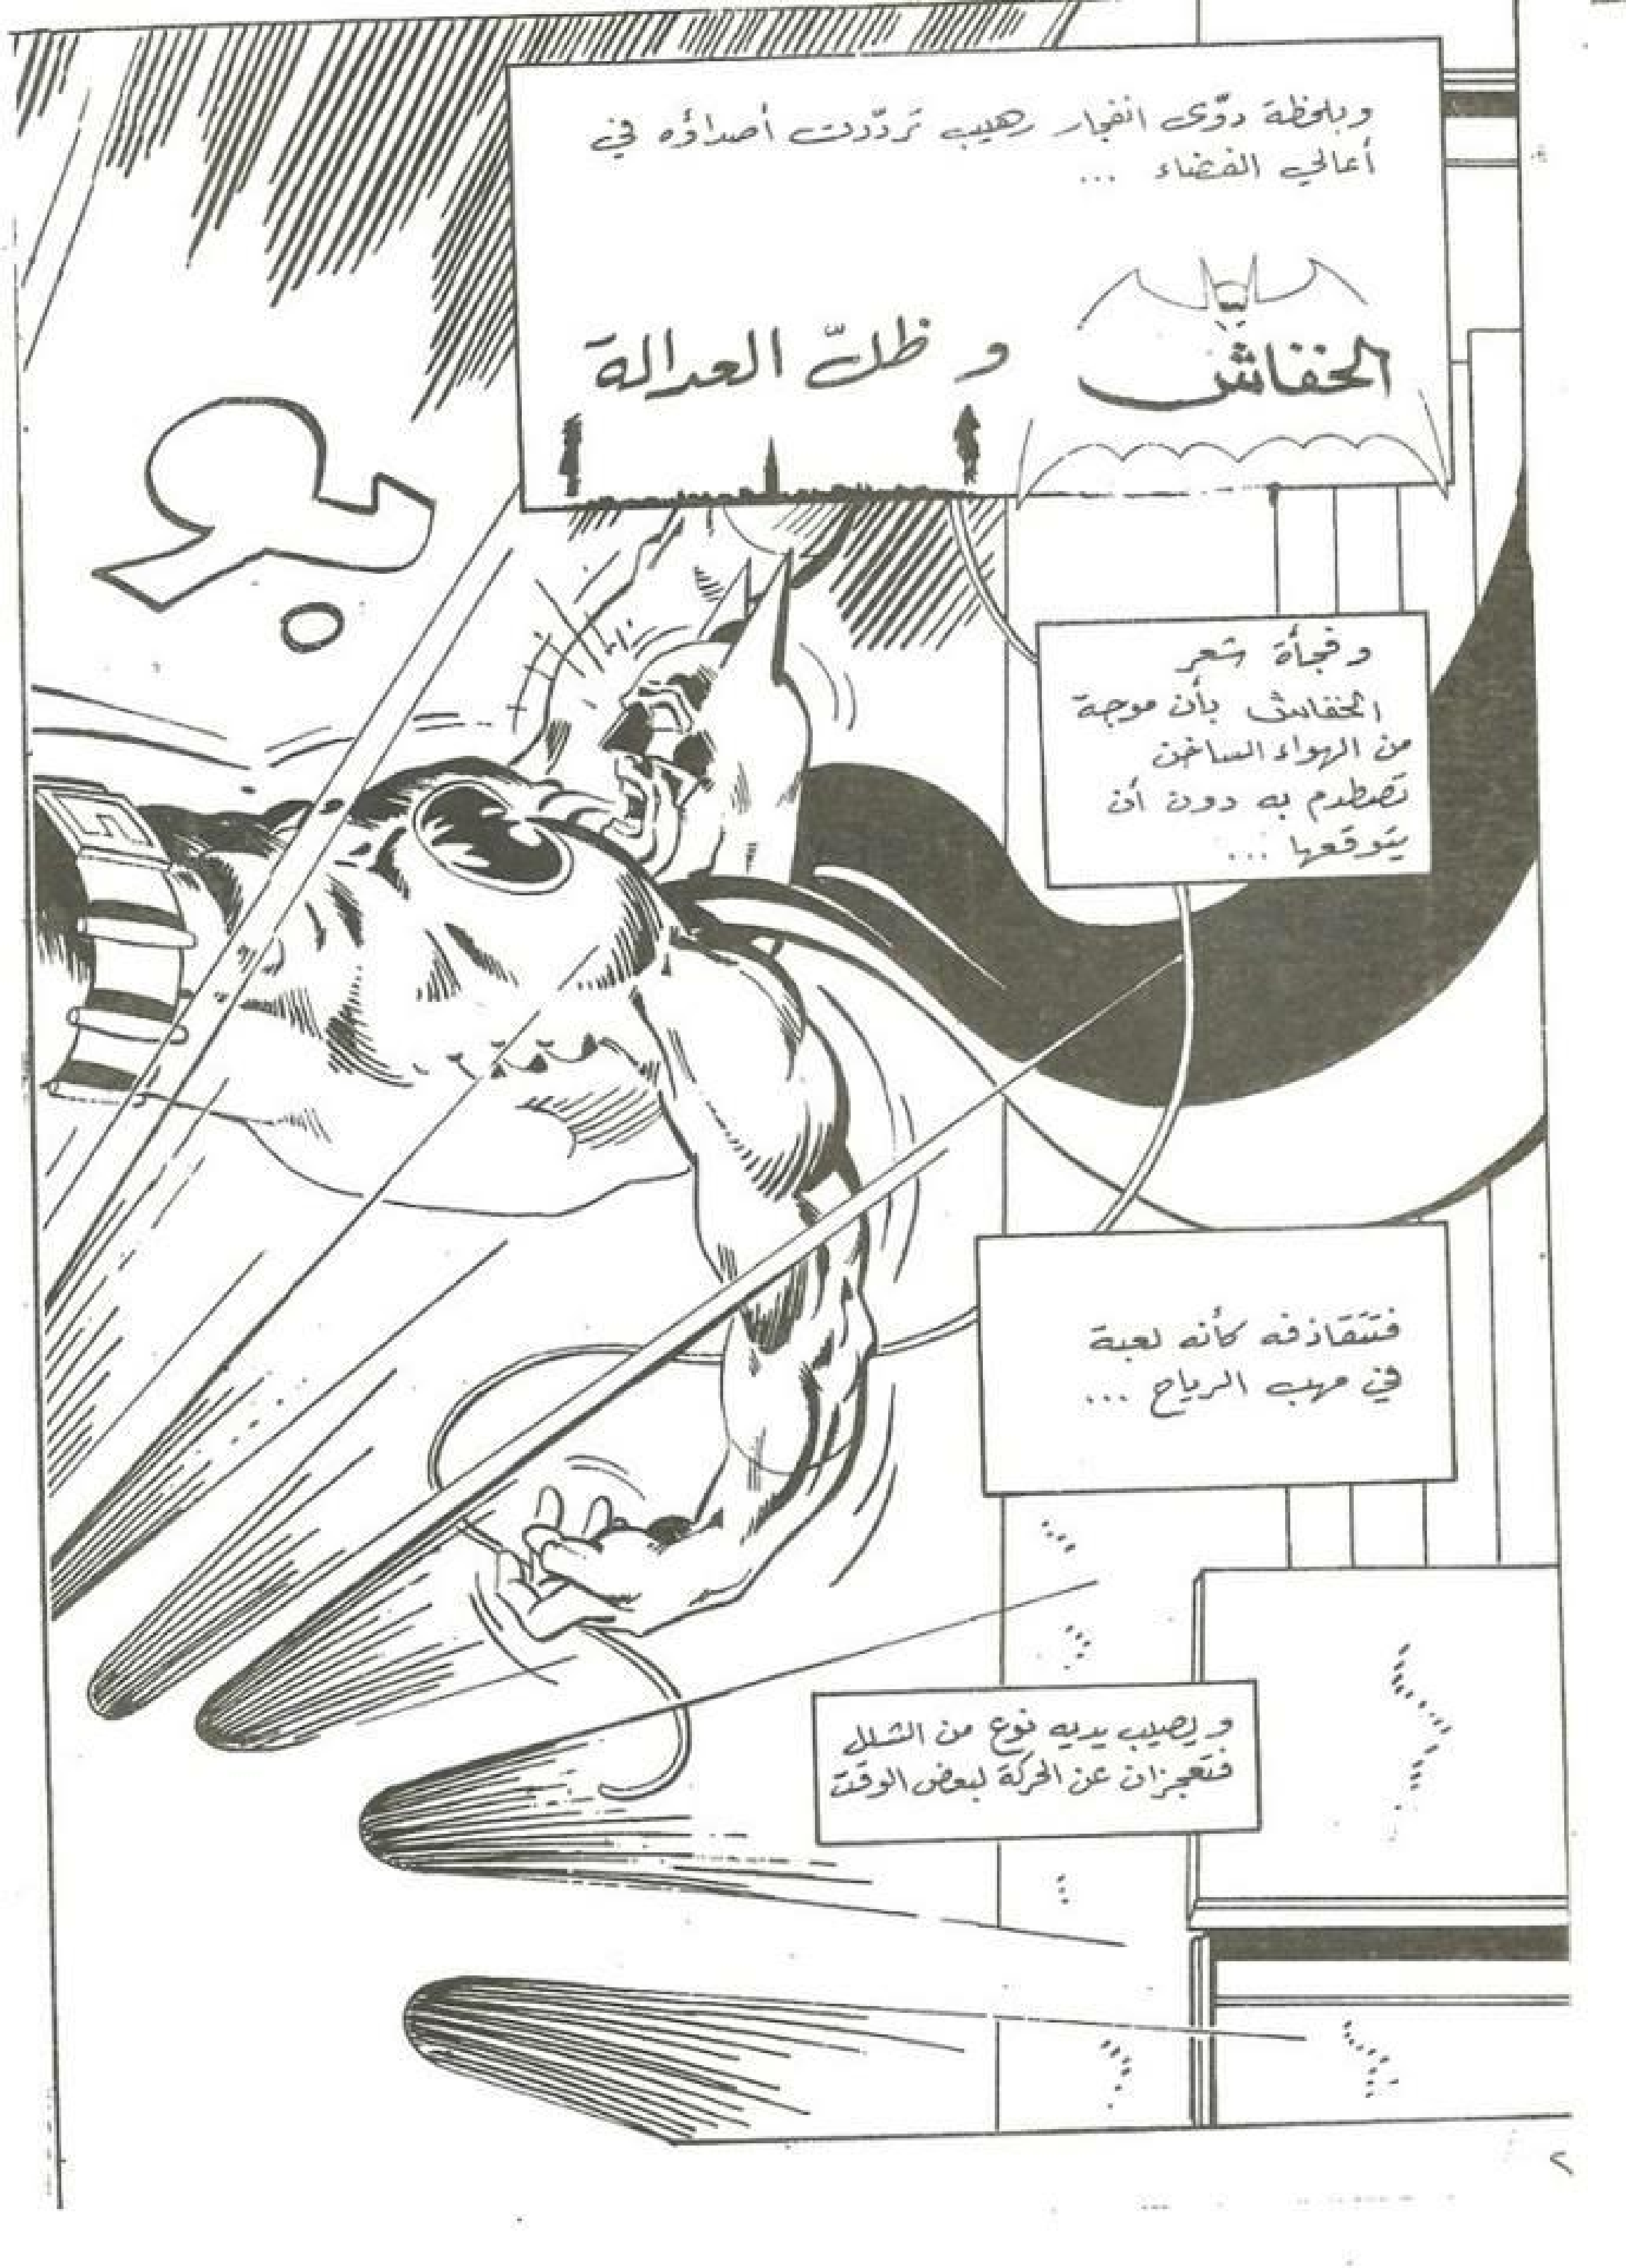 وبلحظة دوّى انفجار رهيب تردّدت أصداؤه في
أعالي الفضاء ...
الخفاش و ظلّ العدالة
بو
وفجأة شعر
الخفاش بأن موجة
من الهواء الساخن
تصطدم به دون أن
يتوقعها ...
فتتقاذفه كأنه لعبة
في مهب الرياح ...
ويصيب يديه نوع من الشلل
فتعجزان عن الحركة لبعض الوقت
٢